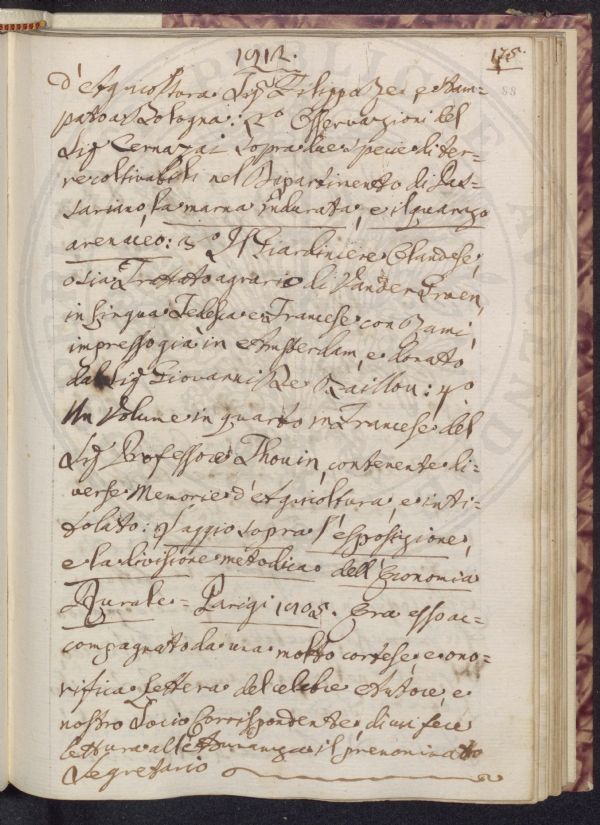 1812.
175.
88
d'Agricoltura Sig.r Filippo Re, e stam=
pato a Bologna: 2.o Osservazioni del
Sig.r Cernazai sopra due specie di ter=
re coltivabili nel Dipartimento di Pas=
sariano, la marna indurata, e il quarzo
arenaceo: 3.o Il Giardiniere Olandese,
o sia Trattato agrario di Vander Groen,
in lingua Tedesca e Francese con Rami,
impresso già in Amsterdam, e donato
dal Sig.r Giovanni De Baillou: 4.o
Un Volume in quarto in Francese del
Sig.r Professore Thouin, contenente di=
verse Memorie d'Agricoltura, e inti=
tolato: Saggio sopra l'esposizione,
e la divisione metodica dell'Economia
Rurale = Parigi 1805. Era esso ac=
compagnato da una molto cortese e ono=
rifica Lettera del celebre Autore, e
nostro Socio Corrispondente, di cui fece
lettura all'Adunanza il prenominato
Segretario